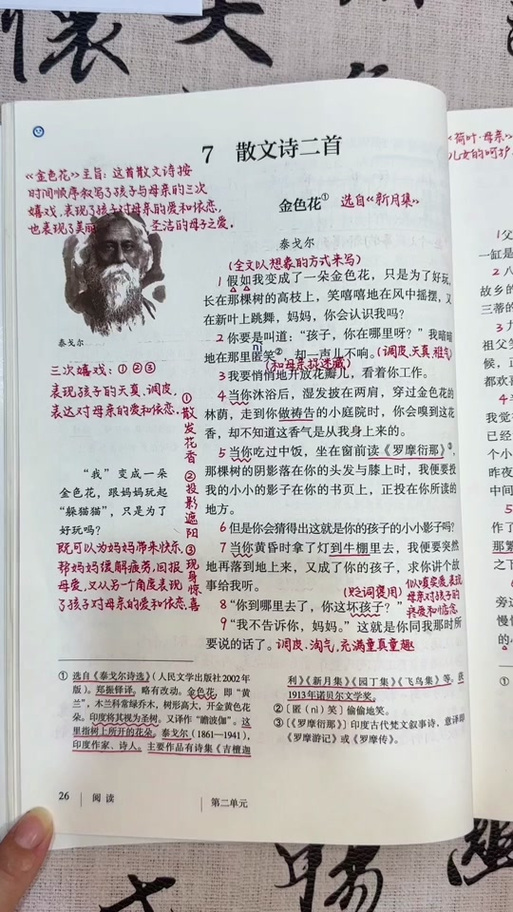 7 散文诗二首
《金色花》主旨：这首散文诗按
时间顺序叙写了孩子与母亲的三次
嬉戏，表现了孩子对母亲的爱和依恋，
也表现了美丽 圣洁的母子之爱。
泰戈尔
三次嬉戏：①②③
表现孩子的天真、调皮，
表达对母亲的爱和依恋。
“我”变成一朵
金色花，跟妈妈玩起
“躲猫猫”，只是为了
好玩吗？
既可以为妈妈带来快乐，
帮妈妈缓解疲劳，回报
母爱，又从另一个角度表现
了孩子对母亲的爱和依恋。
①散发花香
②投影遮阳
③现身惊喜
金色花① 选自《新月集》
泰戈尔
(全文以想象的方式来写)
1 假如我变成了一朵金色花，只是为了好玩，
长在那棵树的高枝上，笑嘻嘻地在风中摇摆，又
在新叶上跳舞，妈妈，你会认识我吗？
2 你要是叫道：“孩子，你在哪里呀？”我暗暗
nì
地在那里匿笑②，却一声儿不响。(调皮、天真、稚气)
(和母亲捉迷藏)
3 我要悄悄地开放花瓣儿，看着你工作。
4 当你沐浴后，湿发披在两肩，穿过金色花的
林荫，走到你做祷告的小庭院时，你会嗅到这花
香，却不知道这香气是从我身上来的。
5 当你吃过中饭，坐在窗前读《罗摩衍那》③，
那棵树的阴影落在你的头发与膝上时，我便要投
我的小小的影子在你的书页上，正投在你所读的
地方。
6 但是你会猜得出这就是你的孩子的小小影子吗？
7 当你黄昏时拿了灯到牛棚里去，我便要突然
地再落到地上来，又成了你的孩子，求你讲个故
事给我听。 (贬词褒用)
似嗔实爱，表现
母亲对孩子的
8 “你到哪里去了，你这坏孩子？”
9 “我不告诉你，妈妈。”这就是你同我那时所
要说的话了。调皮、淘气，充满童真童趣
① 选自《泰戈尔诗选》（人民文学出版社2002年
版）。郑振铎译。略有改动。金色花，即“黄
兰”，木兰科常绿乔木，树形高大，开金黄色花
朵。印度将其视为圣树。又译作“瞻波伽”。这
里指树上所开的花朵。泰戈尔（1861—1941），
印度作家、诗人。主要作品有诗集《吉檀迦
利》《新月集》《园丁集》《飞鸟集》等。获
1913年诺贝尔文学奖。
②〔匿（nì）笑〕偷偷地笑。
③〔《罗摩衍那》〕印度古代梵文叙事诗，意译即
《罗摩游记》或《罗摩传》。
26 阅读 第二单元